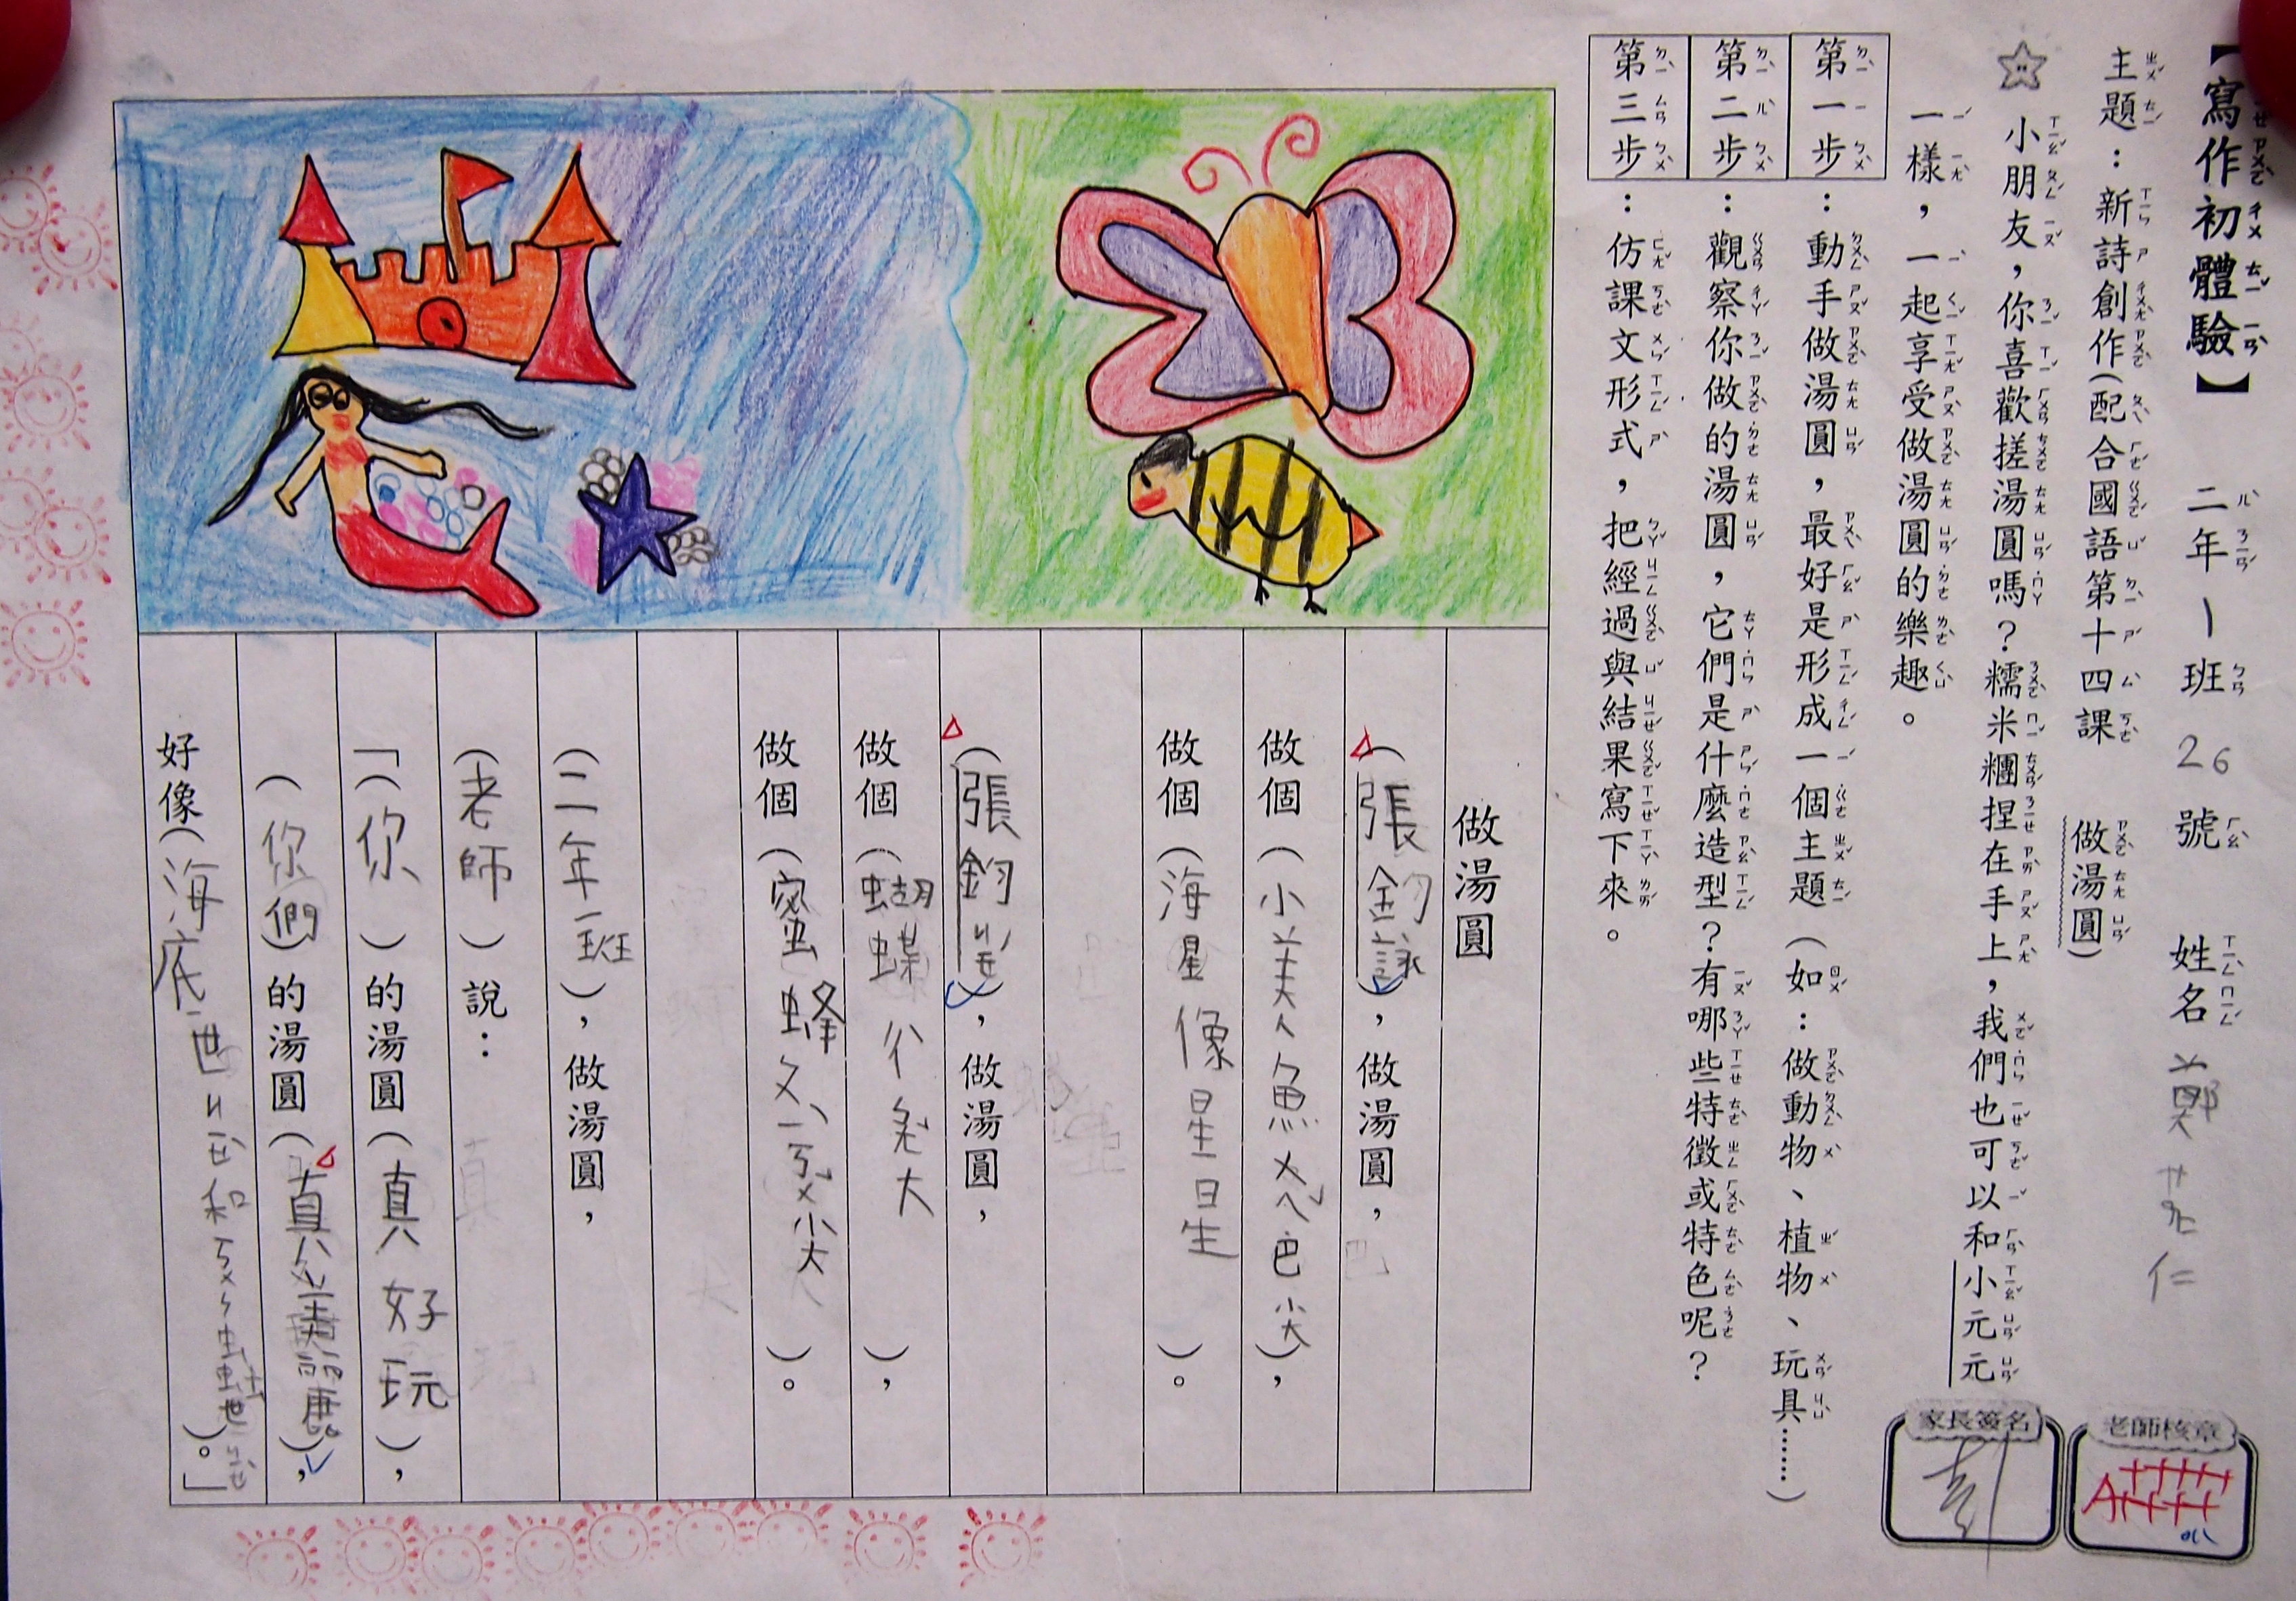 【寫作初體驗】 二年一班 26 號 姓名 鄭 仁
主題：新詩創作(配合國語第十四課 做湯圓)
小朋友，你喜歡搓湯圓嗎？糯米糰捏在手上，我們也可以和小元元
一樣，一起享受做湯圓的樂趣。
第一步：動手做湯圓，最好是形成一個主題（如：做動物、植物、玩具……）
第二步：觀察你做的湯圓，它們是什麼造型？有哪些特徵或特色呢？
第三步：仿課文形式，把經過與結果寫下來。
家長簽名
老師核章
做湯圓
(張鈞詠)，做湯圓，
做個(小美人魚ㄨㄟˇ巴尖)，
做個(海星像星星)。
(張鈞ㄐㄧㄝ)，做湯圓，
做個(蝴蝶 大)，
做個(蜜蜂 尖)。
(二年一班)，做湯圓，
(老師)說：
「(你)的湯圓(真好玩)，
(你們)的湯圓(真 美麗)，
好像(海底世ㄐㄧㄝˋ和ㄎㄨㄣ蟲世ㄐㄧㄝˋ)。」